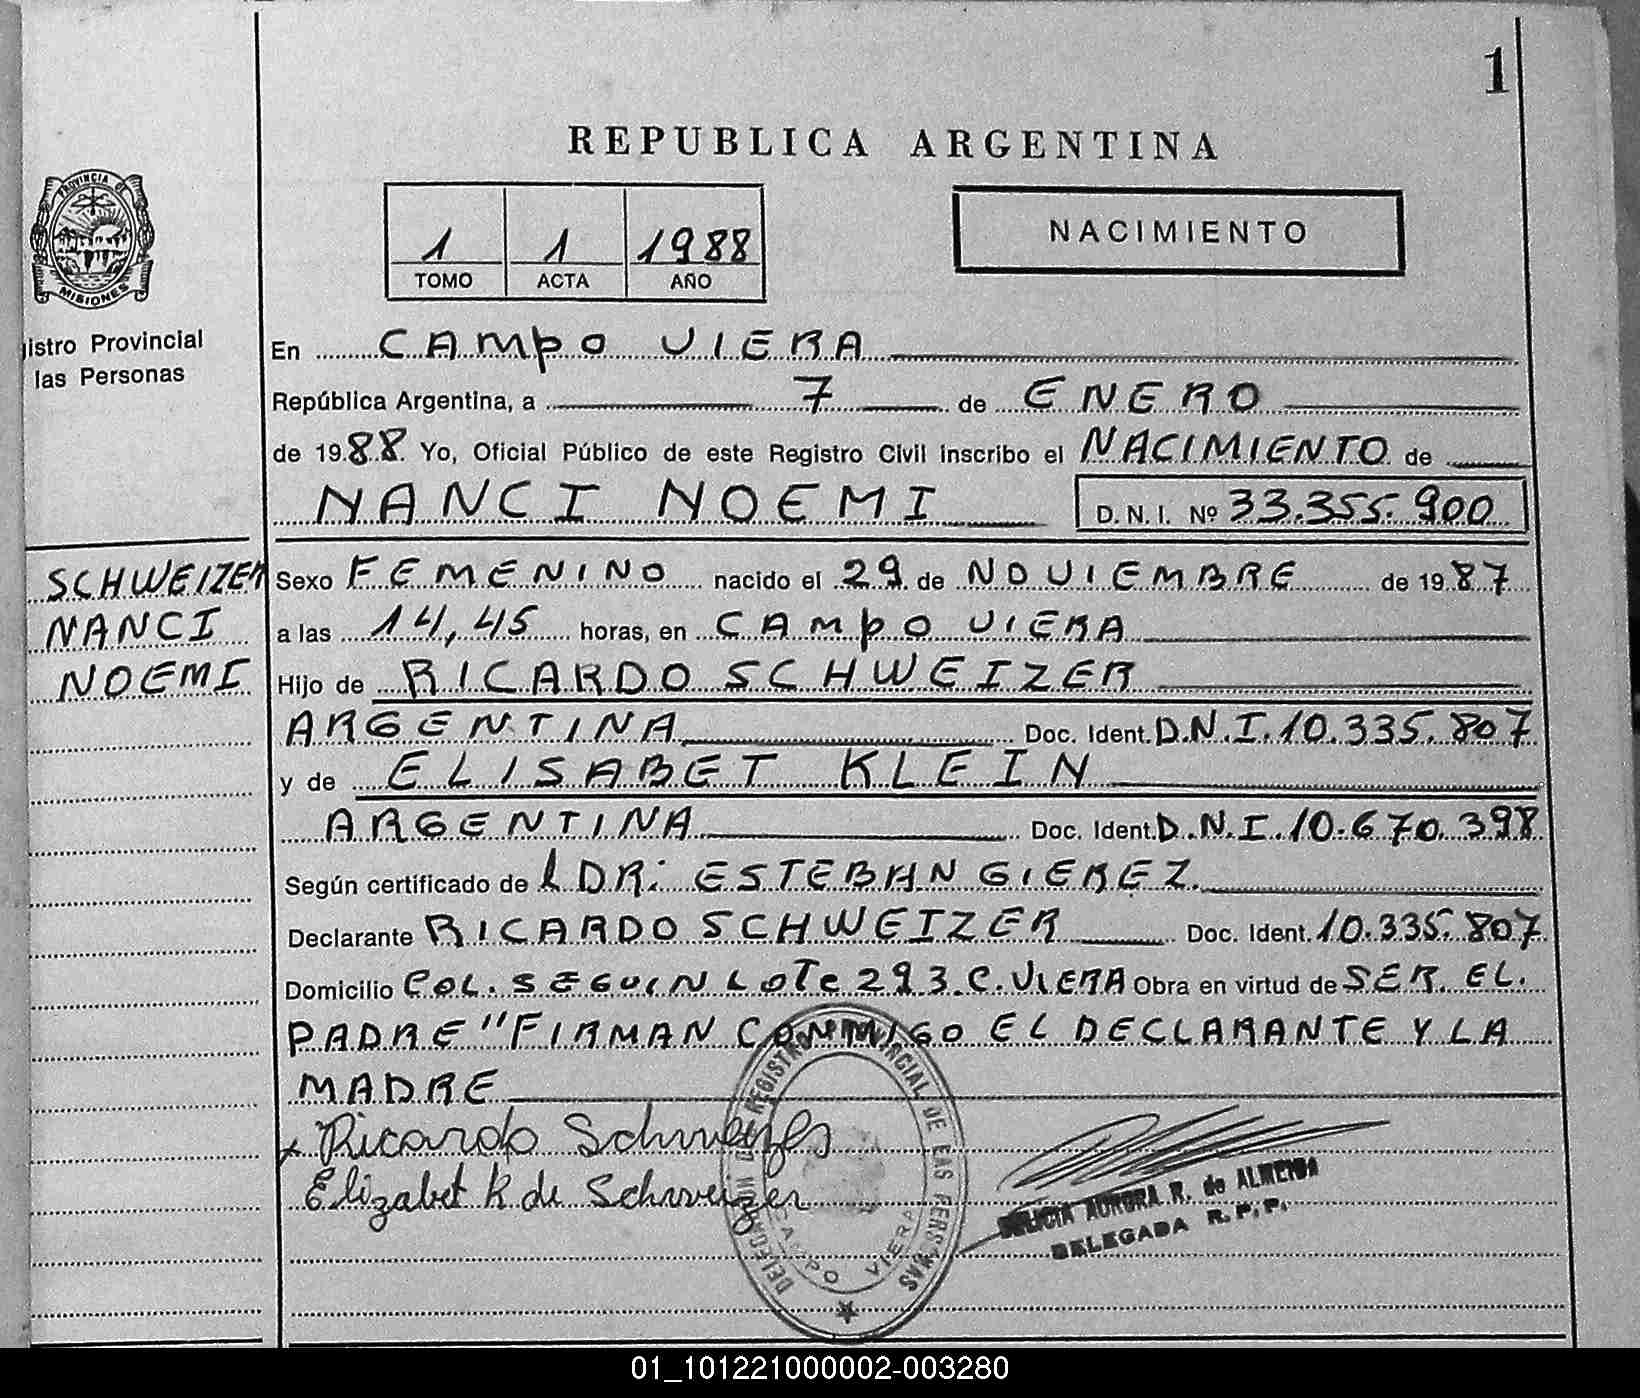 1
REPUBLICA ARGENTINA
PROVINCIA DE
MISIONES
1 1 1988
TOMO ACTA AÑO
NACIMIENTO
istro Provincial
las Personas
En CAMPO VIERA
República Argentina, a 7 de ENERO
de 1988 Yo, Oficial Público de este Registro Civil inscribo el NACIMIENTO de
NANCI NOEMI D. N. I. Nº 33.355.900
SCHWEIZER
NANCI
NOEMI
Sexo FEMENINO nacido el 29 de NOVIEMBRE de 1987
a las 14,45 horas, en CAMPO VIERA
Hijo de RICARDO SCHWEIZER
ARGENTINA Doc. Ident. D.N.I. 10.335.807
y de ELISABET KLEIN
ARGENTINA Doc. Ident. D.N.I. 10.670.398
Según certificado de DR: ESTEBAN GIEREZ
Declarante RICARDO SCHWEIZER Doc. Ident. 10.335.807
Domicilio COL. SEGUIN LOTE 293 C. VIERA Obra en virtud de SER EL
PADRE "FIRMAN CONMIGO EL DECLARANTE Y LA
MADRE
x Ricardo Schweizer
Elizabet K de Schweizer
REGISTRO PROVINCIAL DE LAS PERSONAS
CAMPO VIERA
AURORA R. de ALMEIDA
DELEGADA R.P.P.
01_101221000002-003280